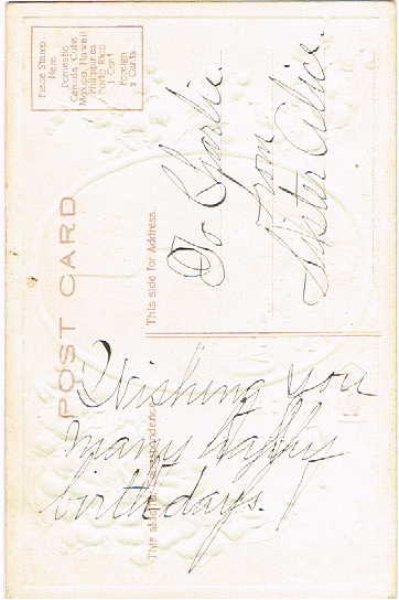 POST CARD
Place Stamp
Here
Domestic
Canada, Cuba
Mexico, Hawaii
Philippines
Porto Rico
1 Cent
Foreign
2 Cents
This side for Correspondence
This side for Address.
Wishing you
many happy
birthdays.
To Charlie.
From
Sister Alice.